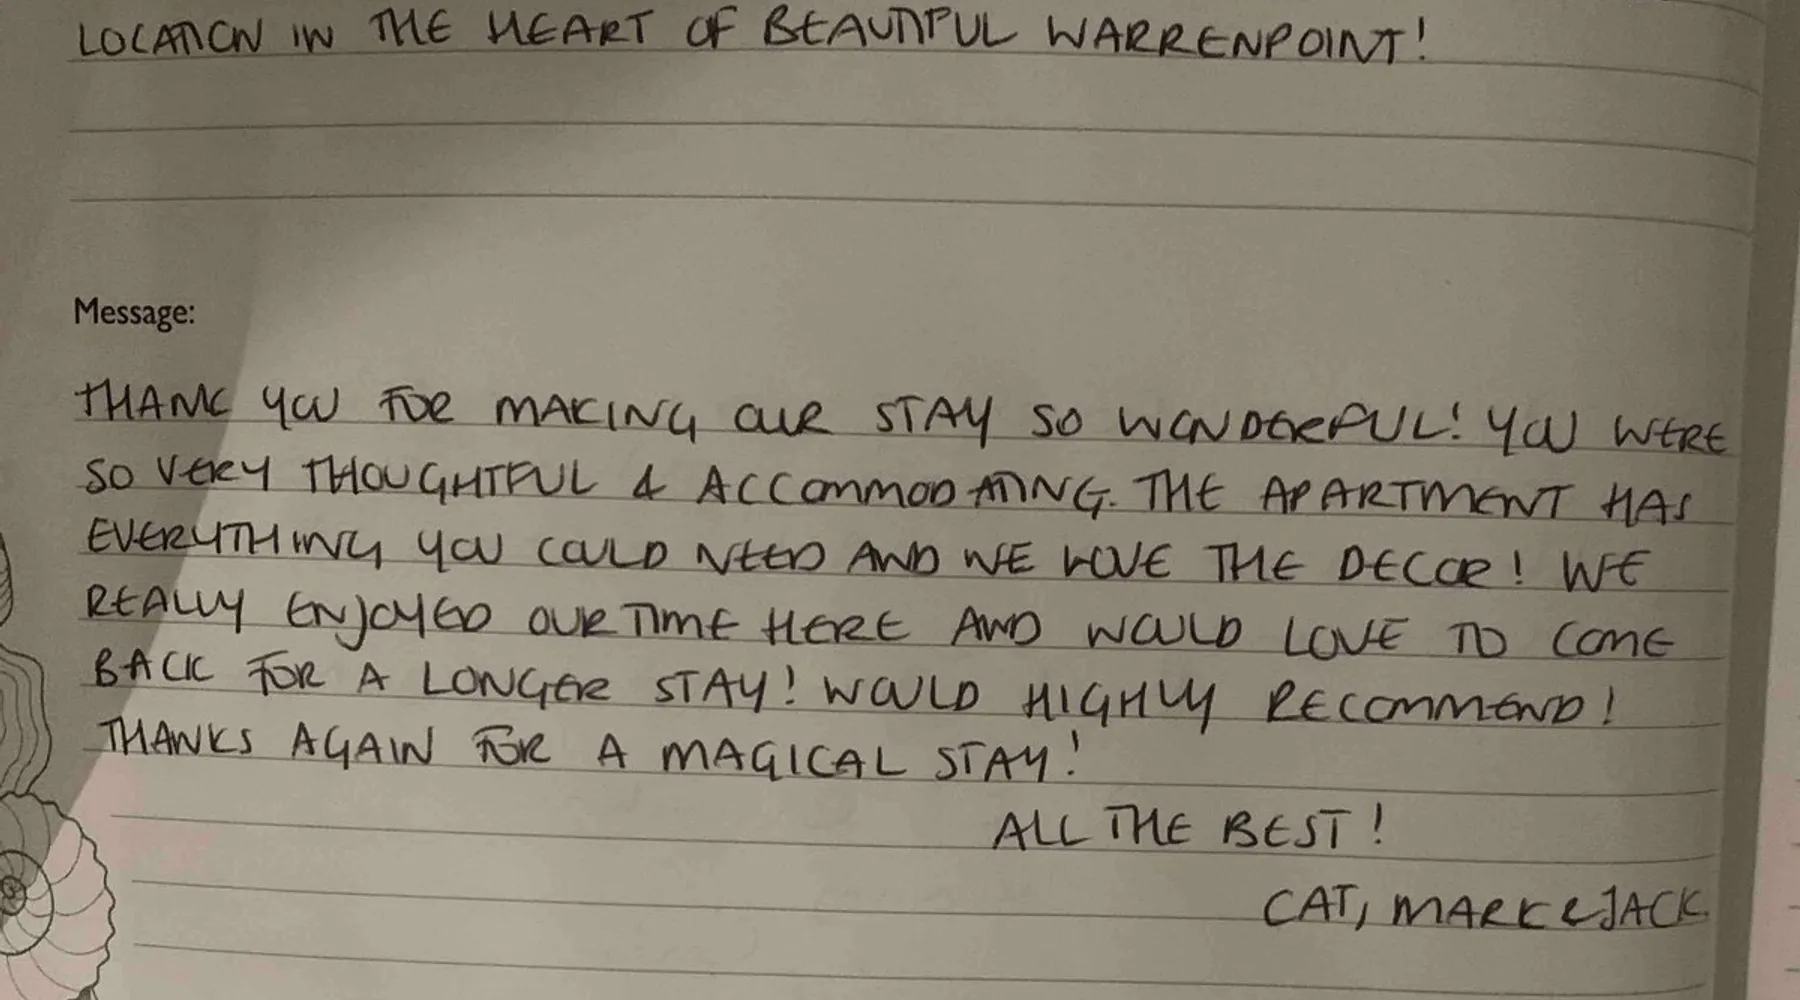 LOCATION IN THE HEART OF BEAUTIFUL WARRENPOINT!
Message:
THANK YOU FOR MAKING OUR STAY SO WONDERFUL! YOU WERE
SO VERY THOUGHTFUL & ACCOMMODATING. THE APARTMENT HAS
EVERYTHING YOU COULD NEED AND WE LOVE THE DECOR! WE
REALLY ENJOYED OUR TIME HERE AND WOULD LOVE TO COME
BACK FOR A LONGER STAY! WOULD HIGHLY RECOMMEND!
THANKS AGAIN FOR A MAGICAL STAY!
ALL THE BEST!
CAT, MARK & JACK